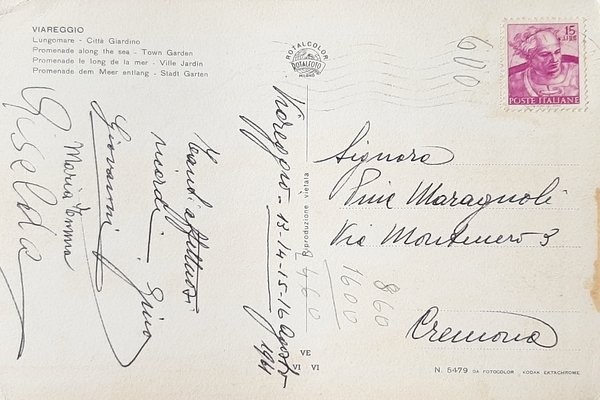 VIAREGGIO
Lungomare - Città Giardino
Promenade along the sea - Town Garden
Promenade le long de la mer - Ville Jardin
Promenade dem Meer entlang - Stadt Garten
ROTALCOLOR
ROTALFOTO
MILANO
15
LIRE
POSTE ITALIANE
600
Viareggio - 13-14-15-16 Agosto
affettuosi
ricordi
Gino
Giovanni
Maria Emma
Giselda
riproduzione vietata
Signora
Pine Maragnoli
Via Montenero 3
Cremona
860
1600
2460
VE
VI VI
N. 5479 DA FOTOCOLOR - KODAK EKTACHROME